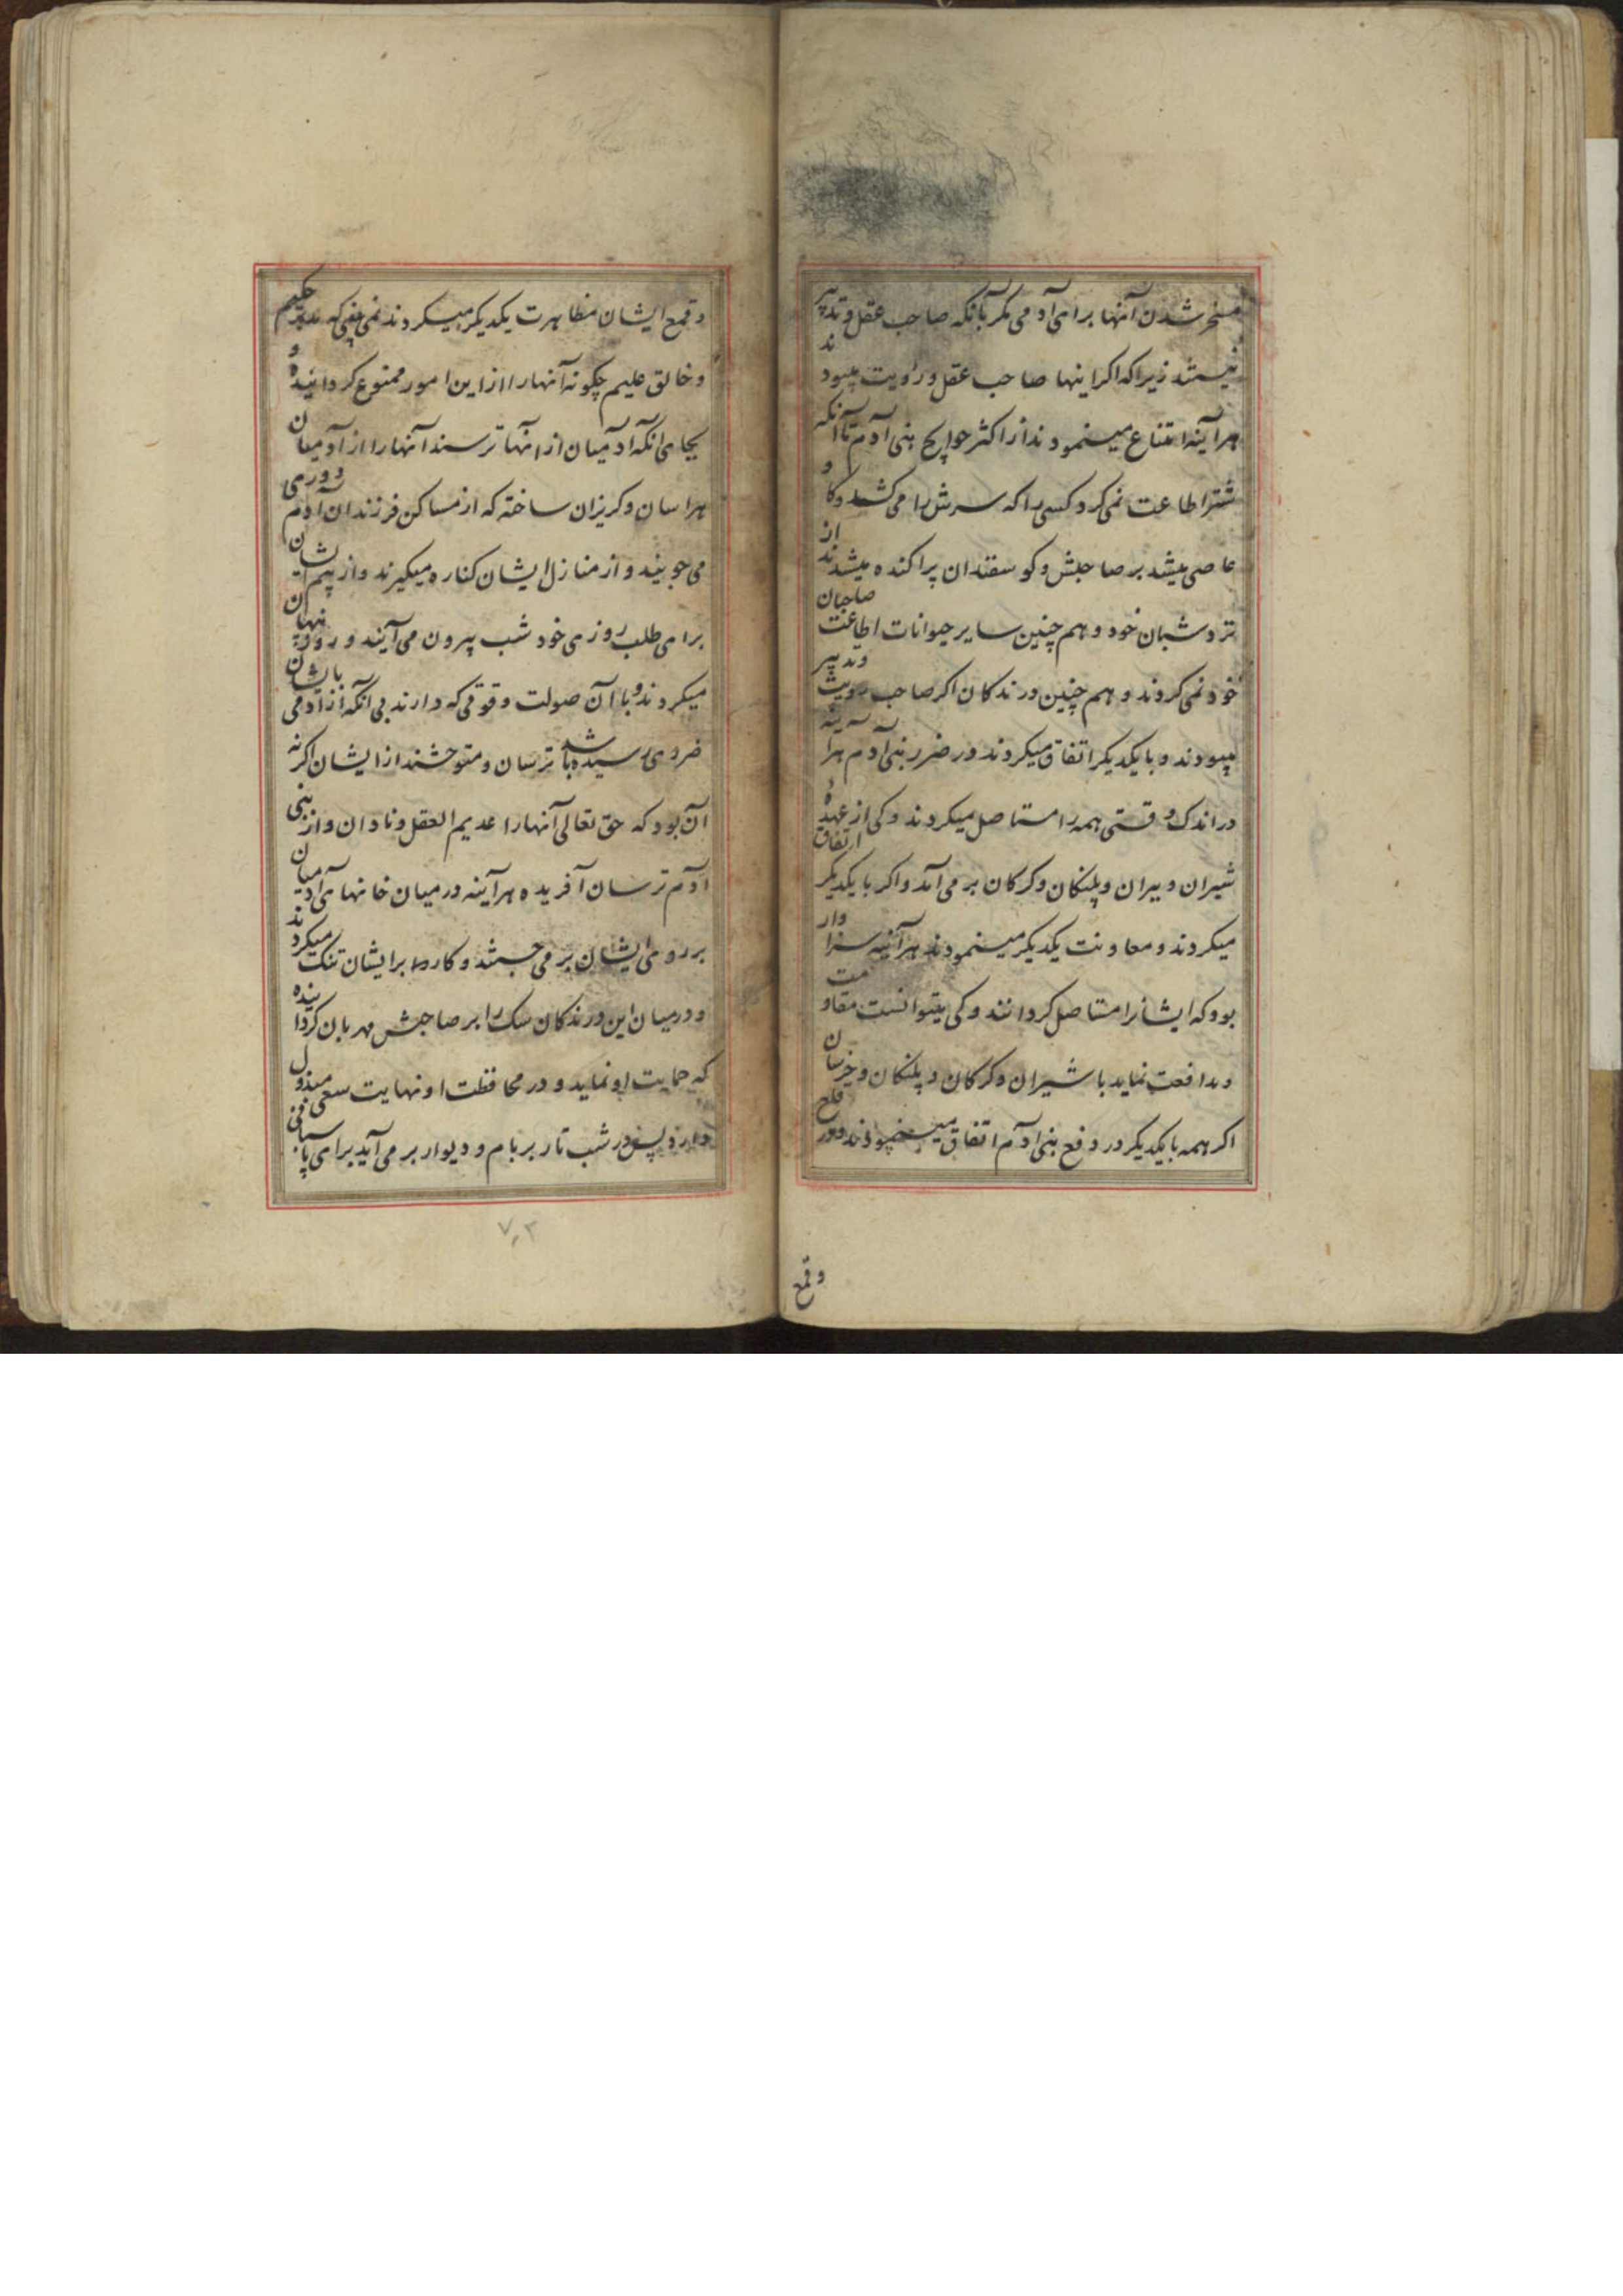 مسخر شدن آنها برای آدمی مکر بآنکه صاحب عقل و تدبیر
نیستند زیرا که اکر اینها صاحب عقل و رویت میبودند
هر آینه امتناع مینمودند از اکثر حوایج بنی آدم تا آنکه
شتر اطاعت نمی کرد کسی را که سرش را می کشد و کاو
عاصی میشد بر صاحبش و کوسفندان پراکنده میشدند از
نزد شبان خود و هم چنین سایر حیوانات اطاعت صاحبان
خود نمی کردند و هم چنین درندکان اکر صاحب رویت و تدبیر
میبودند و با یکدیکر اتفاق میکردند در ضرر بنی آدم هر آینه
در اندک وقتی همه را مستاصل میکردند و کی از عهده
شیران و ببران و پلنکان و کرکان بر می آمد و اکر با یکدیکر اتفاق
میکردند و معاونت یکدیکر مینمودند هر آینه سزاوار
بود که ایشانرا مستاصل کردانند و کی میتوانست مقاومت
و مدافعت نماید با شیران و کرکان و پلنکان و خرسان
اکر همه با یکدیکر در دفع بنی آدم اتفاق مینمودند و در قلع
وقمع
و قمع ایشان مظاهرت یکدیکر میکردند نمی بینی که مدبر حکیم
و خالق علیم چکونه آنها را از این امور ممنوع کردانیده و
بجای آنکه آدمیان از آنها ترسند آنها را از آدمیان
هراسان و کریزان ساخته که از مساکن فرزندان آدم دوری
می جویند و از منازل ایشان کناره میکیرند و از بیم ایشان
برای طلب روزی خود شب بیرون می آیند و روز پنهان
میکردند و با آن صولت و قوتی که دارند بی آنکه از آدمی بایشان
ضرری رسیده باشد ترسان و متوحشند از ایشان اکر نه
آن بود که حق تعالی آنها را عدیم العقل و نادان و از بنی
آدم ترسان آفریده هر آینه در میان خانهای آدمیان
بر روی ایشان بر می جستند و کار را بر ایشان تنک میکردند
و در میان این درندکان سک را بر صاحبش مهربان کردانیده
که حمایت او نماید و در محافظت او نهایت سعی مبذول
دارد پس در شب تار بر بام و دیوار بر می آید برای پاسبانی
۷۰۲